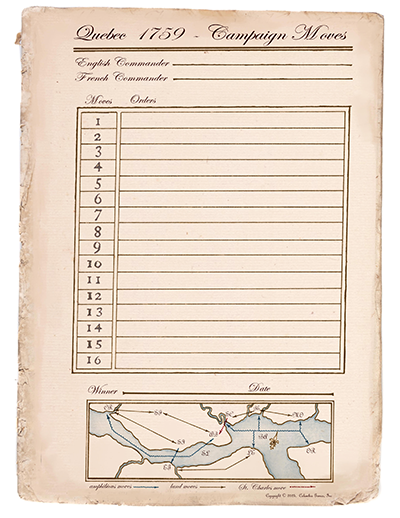 Quebec 1759 - Campaign Moves
English Commander
French Commander
Moves Orders
1
2
3
4
5
6
7
8
9
10
11
12
13
14
15
16
Winner Date
amphibious moves land moves St. Charles move
Copyright © Columbia Games, Inc.